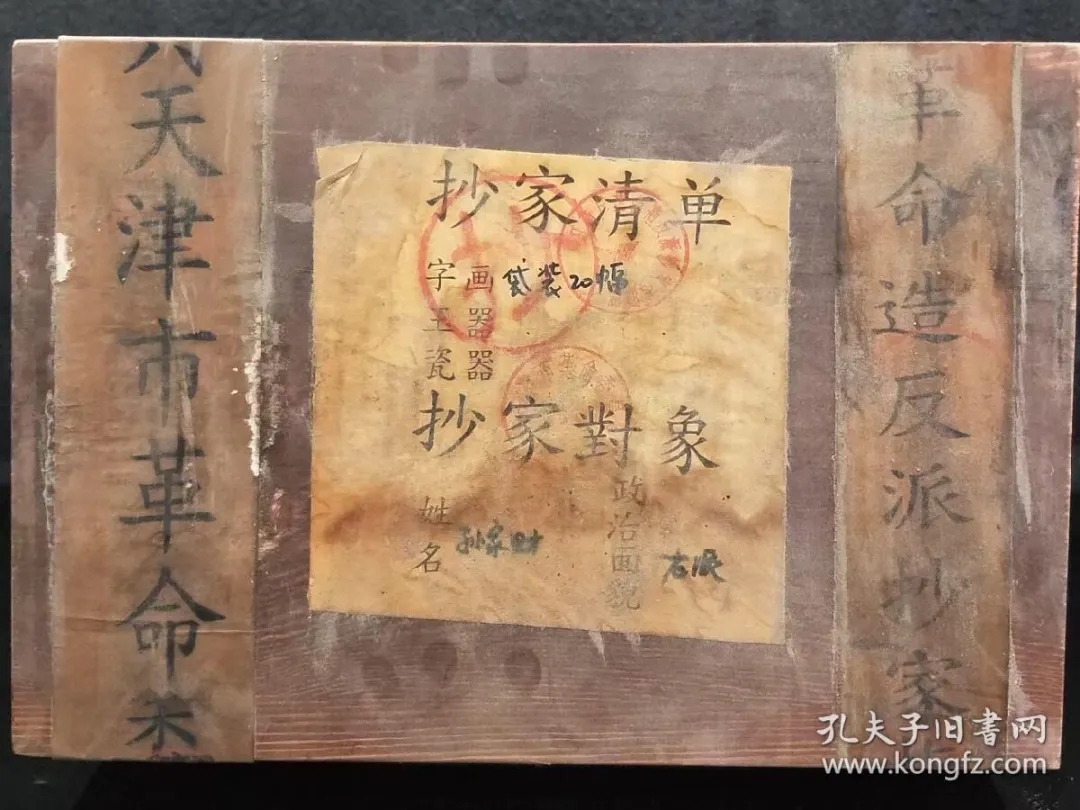 天津市革命
抄家清单
字画 袋装20幅
玉器
瓷器
抄家對象
姓名 孙家财
政治面貌 右派
革命造反派抄家
孔夫子旧书网
www.kongfz.com